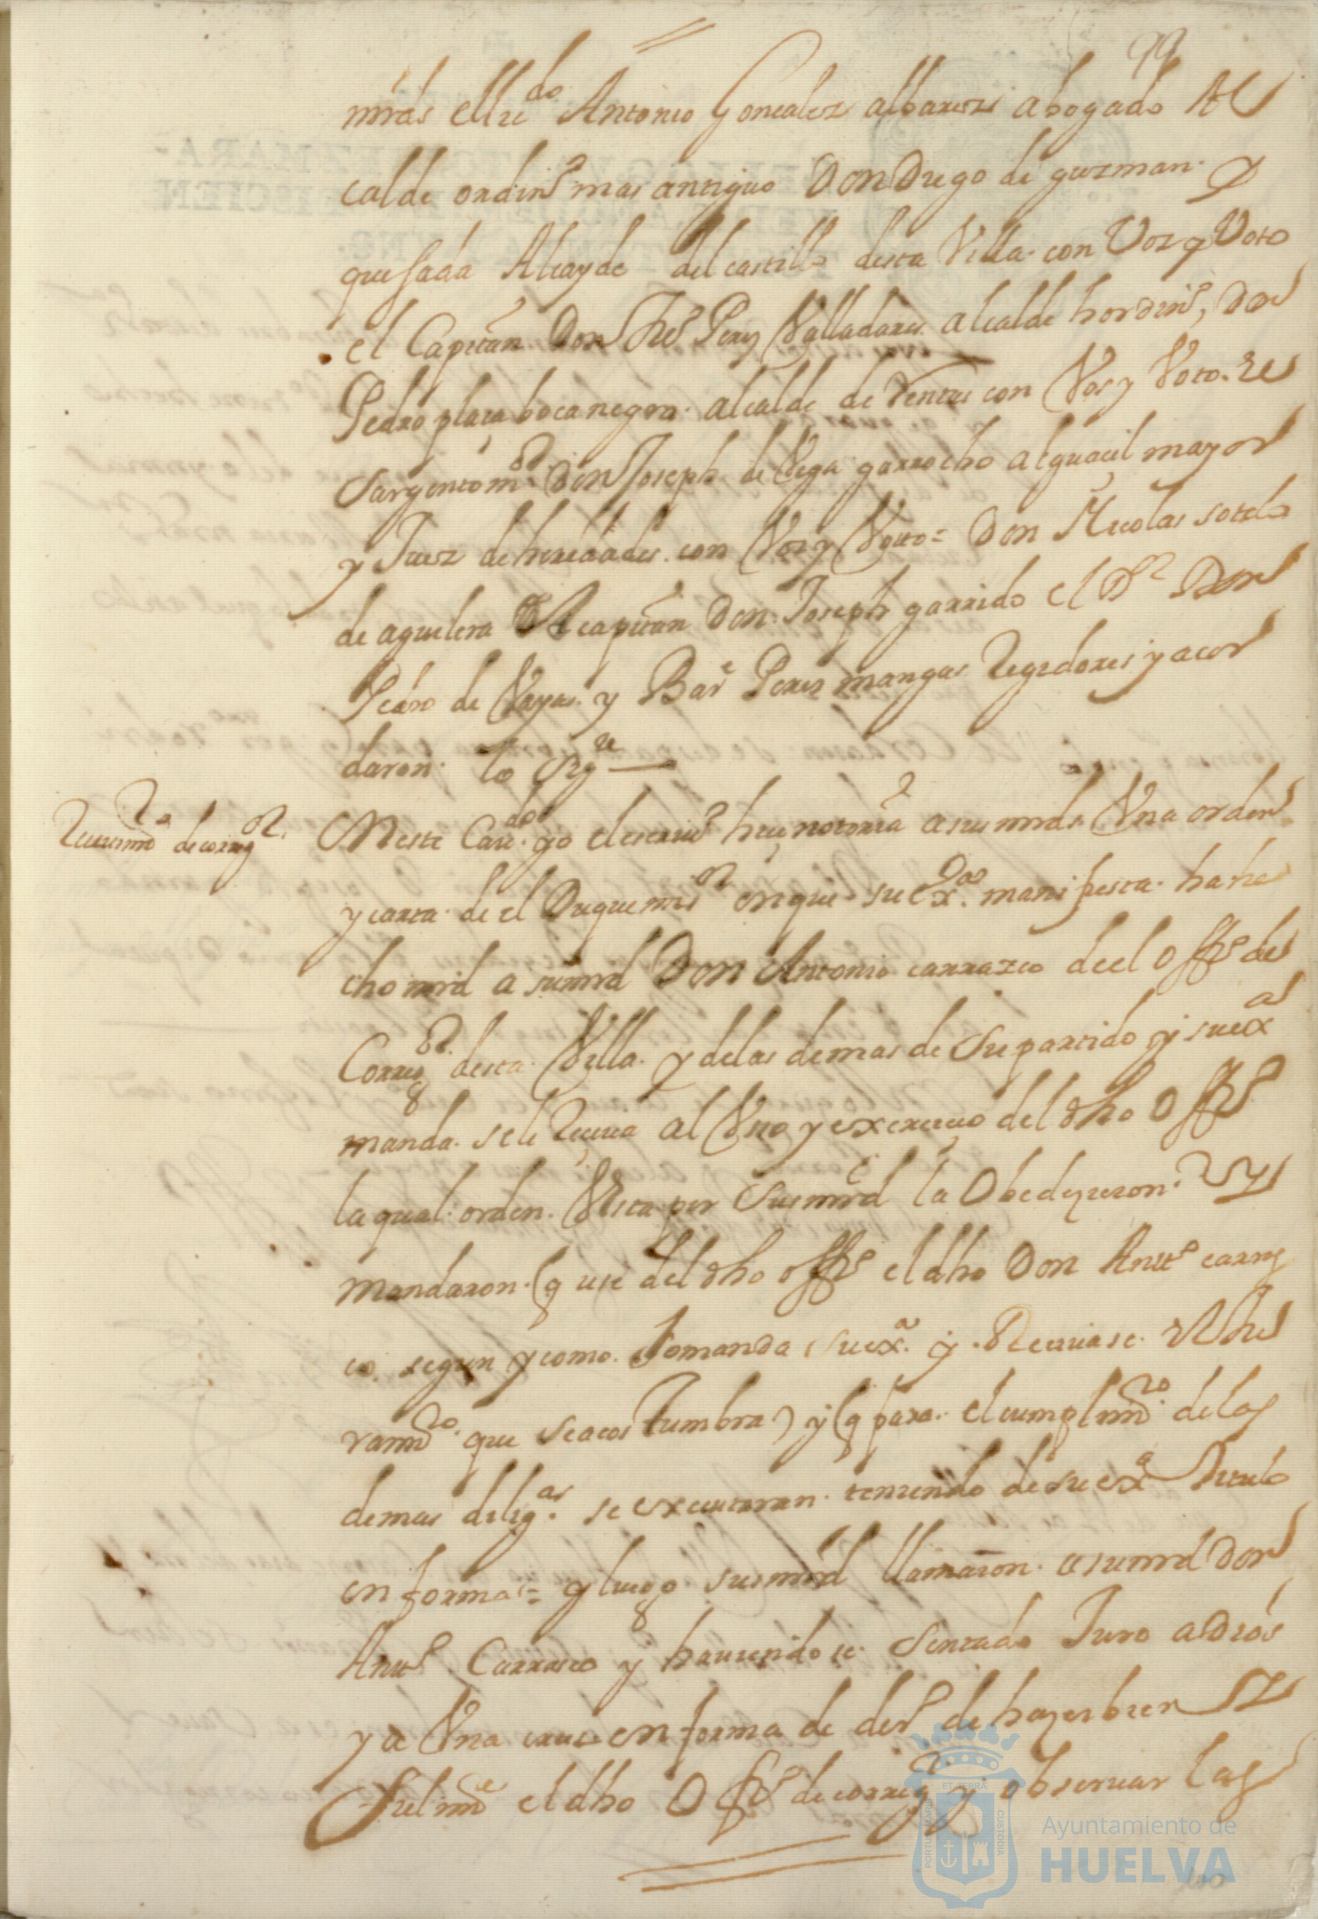 99
mrds el lizdo Antonio Gonzalez albarez abogado Al
calde ordino mas antiguo Don Diego de guzman y
quesada Alcayde del castillo desta Villa con Voz y Voto
el Capitan Don Juo Perez Valladares alcalde hordino, Don
Pedro plaça bocanegra alcalde de Rentas con Vos y Voto el
Sargento mor Don Joseph de Vega garrocho alguacil mayor
y Juez de heredades con Voz y Votto = Don Nicolas sotelo
de aguilera el capitan Don Joseph garrido el Dr Don
Pedro de Vayas y Bare Perez mangas Regidores y acor
daron lo sige
Reciuimto de corregor
En este Cauo yo el escriuo hice notoria a sus mrds Una orden
y carta de el Duque mi sr en que su exa manifiesta ha he
cho mrd a su mrd Don Antonio carrazco de el offo de
Corregor desta Villa y de las demas de su partido y su exa
manda se le Reciua al Uso y exercicio del dho Offo
la qual orden Vista por sus mrd la Obedezieron y
mandaron q use del dho offo el dho Don Anto carraz
co segun y como lo manda su exa y Reciuase el Ju
ramto que se acostumbra y q para el cumplimto de las
demas diligas se executaran teniendo de su exa titulo
en forma = y luego sus mrd llamaron a su mrd Don
Anto Carrasco y hauiendose Sentado Juro a Dios
y a Una cruz en forma de dero de hazer bien y
fielmte el dho Offo de corregor y obseruar las
Ayuntamiento de
HUELVA
100